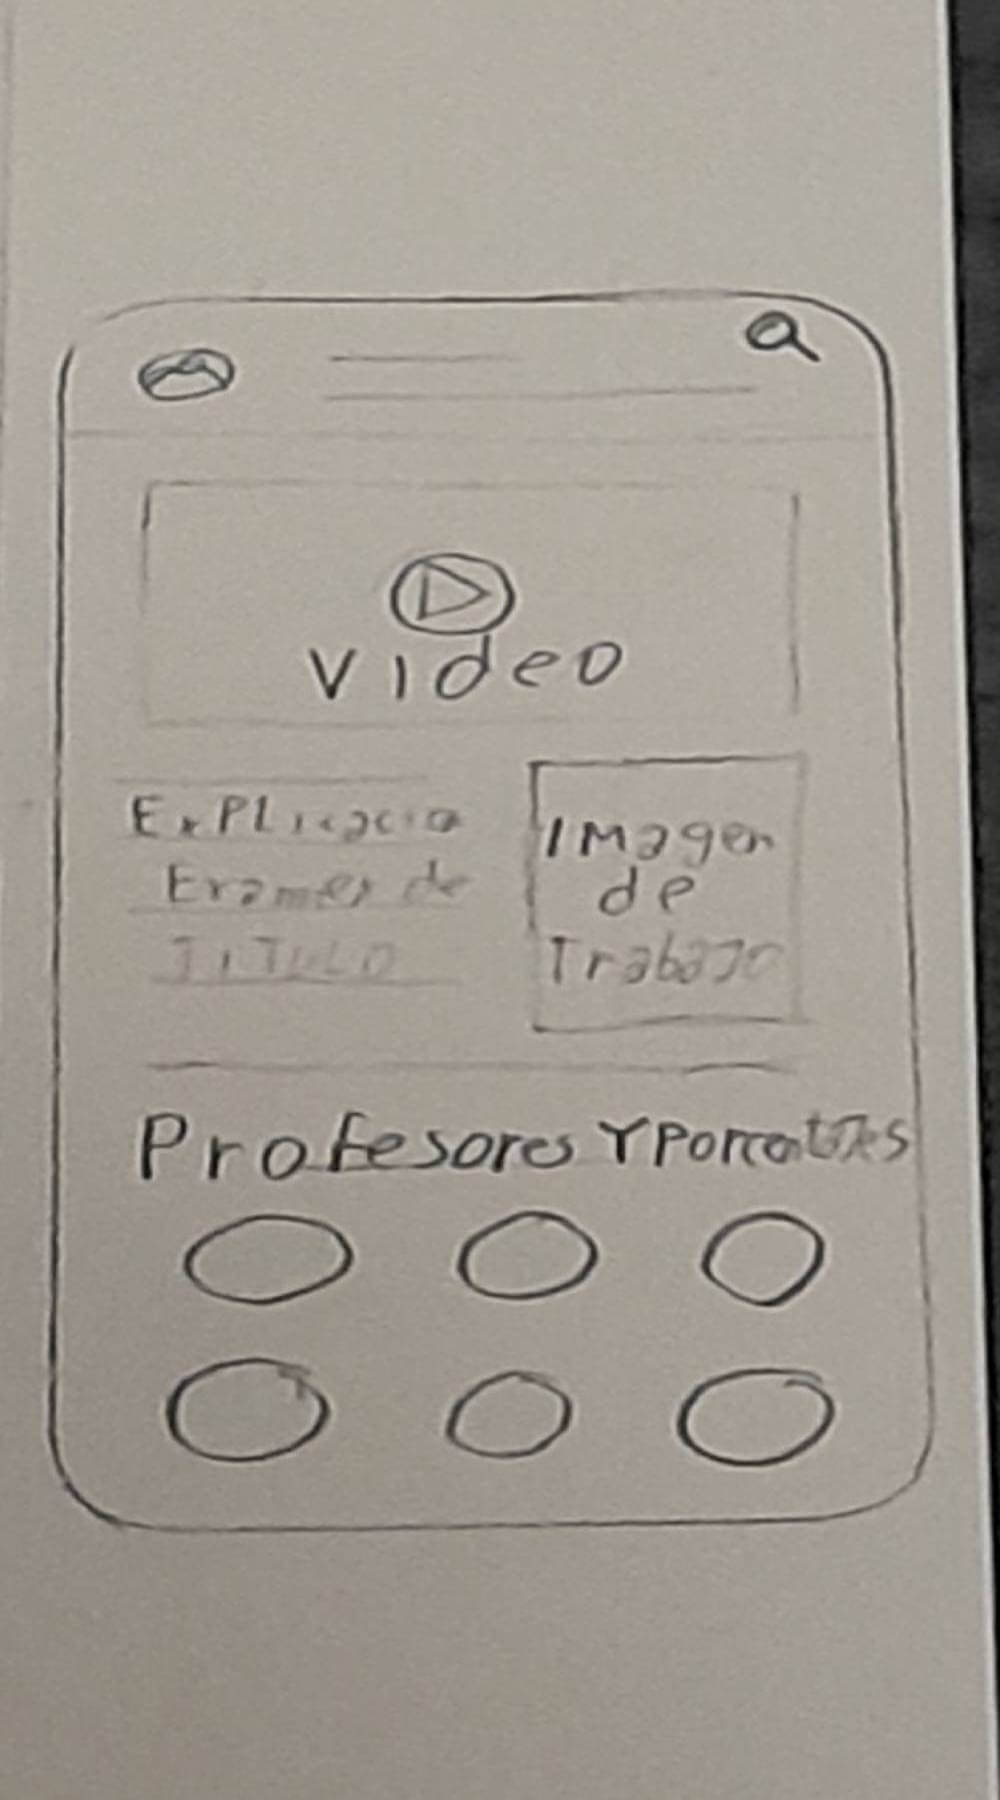 video
Explicacio
Examen de
TITULO
Imagen
de
Trabajo
Profesores Y Porcentajes